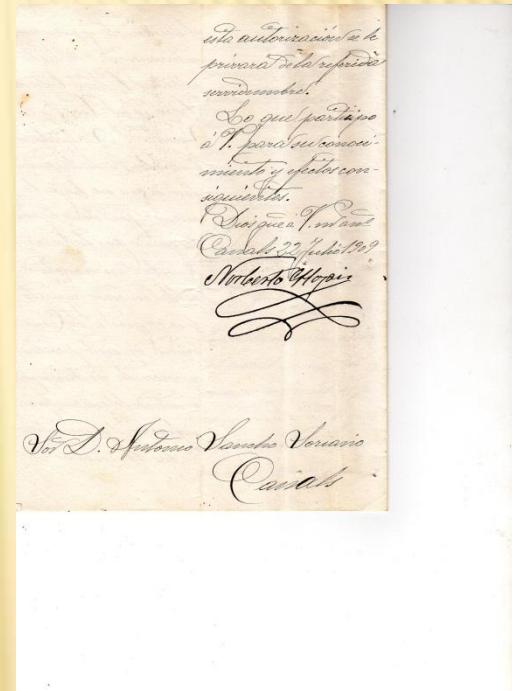 esta autorización se le
privará de la referida
servidumbre.
Lo que participo
á V. para su conoci-
miento y efectos con-
siguientes.
Dios gue á V. m. an.
Canals 22 Julio 1909
Norberto
Sor. D. Antonio Sancho Soriano
Canals